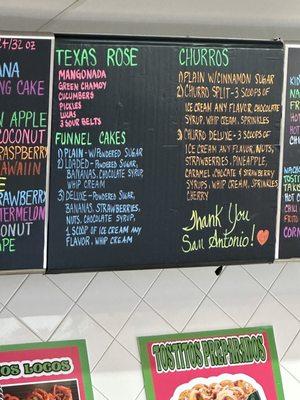 24/32 oz
ANA
NG CAKE
APPLE
COCONUT
RASPBERRY
WAIIN
AWBERRY
TERMELON
ONUT
APE
TEXAS ROSE
MANGONADA
GREEN CHAMOY
CUCUMBERS
PICKLES
LUCAS
3 SOUR BELTS
FUNNEL CAKES
1) PLAIN - W/POWDERED SUGAR
2) LOADED - POWDERED SUGAR,
BANANAS, CHOCOLATE SYRUP,
WHIP CREAM
3) DELUXE - POWDERED SUGAR,
BANANAS, STRAWBERRIES,
NUTS, CHOCOLATE SYRUP
1 SCOOP OF ICE CREAM ANY
FLAVOR, WHIP CREAM
CHURROS
1) PLAIN W/CINNAMON SUGAR
2) CHURRO SPLIT - 3 SCOOPS OF
ICE CREAM ANY FLAVOR, CHOCOLATE
SYRUP, WHIP CREAM, SPRINKLES
3) CHURRO DELUXE - 3 SCOOPS OF
ICE CREAM ANY FLAVOR, NUTS,
STRAWBERRIES, PINEAPPLE,
CARAMEL, CHOCOLATE & STRAWBERRY
SYRUPS, WHIP CREAM, SPRINKLES
CHERRY
Thank You
San Antonio!
KID
HOT
CHILI
CORN
OS LOCOS
TOSTITOS PREPARADOS